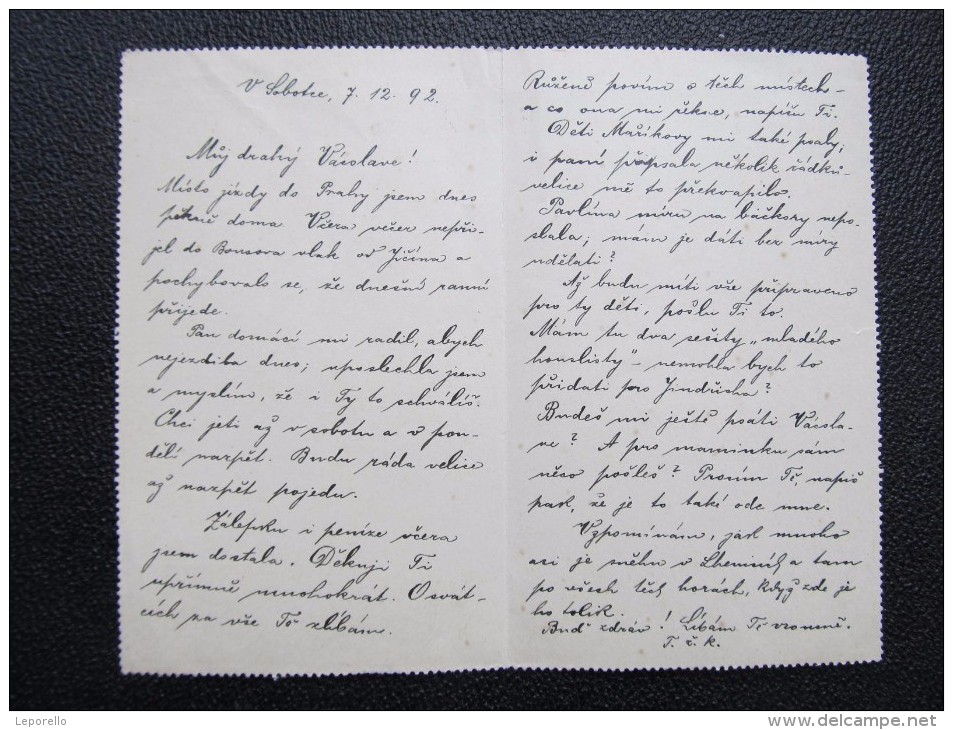 V Sobotce, 7. 12. 92.
Můj drahý Vácslave!
Místo jízdy do Prahy jsem dnes
pěkně doma. Včera večer nepři-
jel do Bousova vlak od Jičína a
pochybovalo se, že dnešní ranní
přijede.
Pan domácí mi radil, abych
nejezdila dnes; uposlechla jsem
a myslím, že i Ty to schválíš.
Chci jeti až v sobotu a v pon-
dělí nazpět. Budu ráda velice
až nazpět pojedu.
Zálepku i peníze včera
jsem dostala. Děkuji Ti
upřímně mnohokrát. O svát-
cích za vše Tě zlíbám.
Růženě povím o těch místech-
a co ona mi řekne, napíšu Ti.
Děti Maříkovy mi také psaly;
i paní připsala několik řádků-
velice mě to překvapilo.
Pavlína míru na báčkory nepo-
slala; mám je dáti bez míry
udělati?
Až budu míti vše připraveno
pro ty děti, pošlu Ti to.
Mám tu dva sešity „mladého
houslisty" - nemohla bych to
přidati pro Jindřicha?
Budeš mi ještě psáti Vácsla-
ve? A pro maminku sám
něco pošleš? Prosím Tě, napiš
pak, že je to také ode mne.
Vzpomínám, jak mnoho
asi je sněhu v a tam
po všech těch horách, když zde je
ho tolik.
Buď zdráv! Líbám Tě vroucně.
T. ž. k.
Leporello
www.delcampe.net